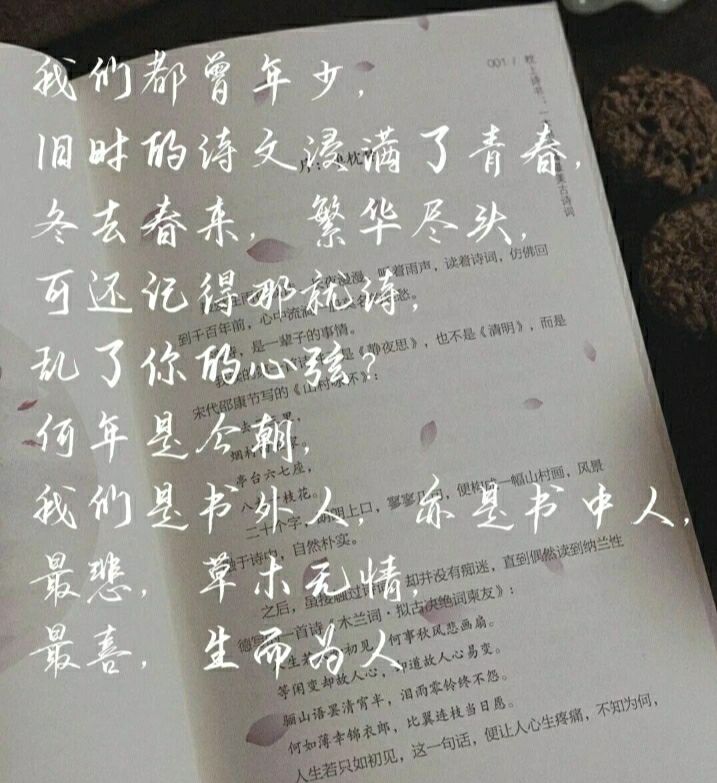 我们都曾年少，
旧时的诗文浸满了青春，
冬去春来， 繁华尽头，
可还记得那说诗，
乱了你的心弦？
何年是今朝，
我们是书外人， 亦是书中人，
最悲， 草木无情，
最喜， 生而为人
001 / 枕上诗书：一
美古诗词
序：
夜漫漫，听着雨声，读着诗词，仿佛回
到千百年前，心中流淌
，是一辈子的事情。
是《静夜思》，也不是《清明》，而是
宋代邵康节写的《山村咏怀》：
去
烟村
亭台六七座，
八 枝花。
二十个字，朗朗上口，寥寥几句，便构成一幅山村画，风景
融于诗内，自然朴实。
之后，虽接触过诗词，却并没有痴迷，直到偶然读到纳兰性
德写的一首诗《木兰词·拟古决绝词柬友》：
人生若只如初见，何事秋风悲画扇。
等闲变却故人心，却道故人心易变。
骊山语罢清宵半，泪雨零铃终不怨。
何如薄幸锦衣郎，比翼连枝当日愿。
人生若只如初见，这一句话，便让人心生疼痛，不知为何，